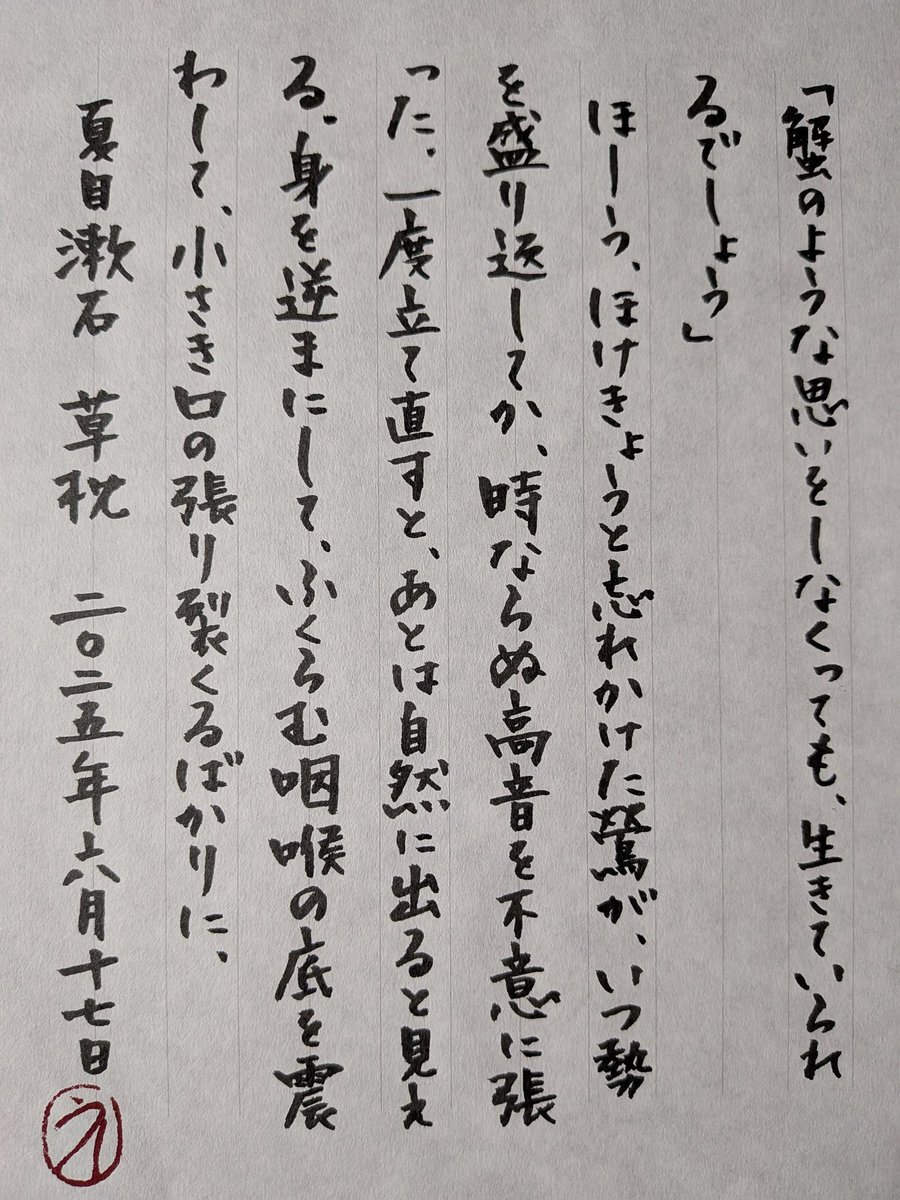 「蟹のような思いをしなくっても、生きていられ
るでしょう」
ほーう、ほけきょうと忘れかけた鶯が、いつ勢
を盛り返してか、時ならぬ高音を不意に張
った。一度立て直すと、あとは自然に出ると見え
る。身を逆まにして、ふくらむ咽喉の底を震
わして、小さき口の張り裂くるばかりに、
夏目漱石 草枕 二〇二五年六月十七日
え